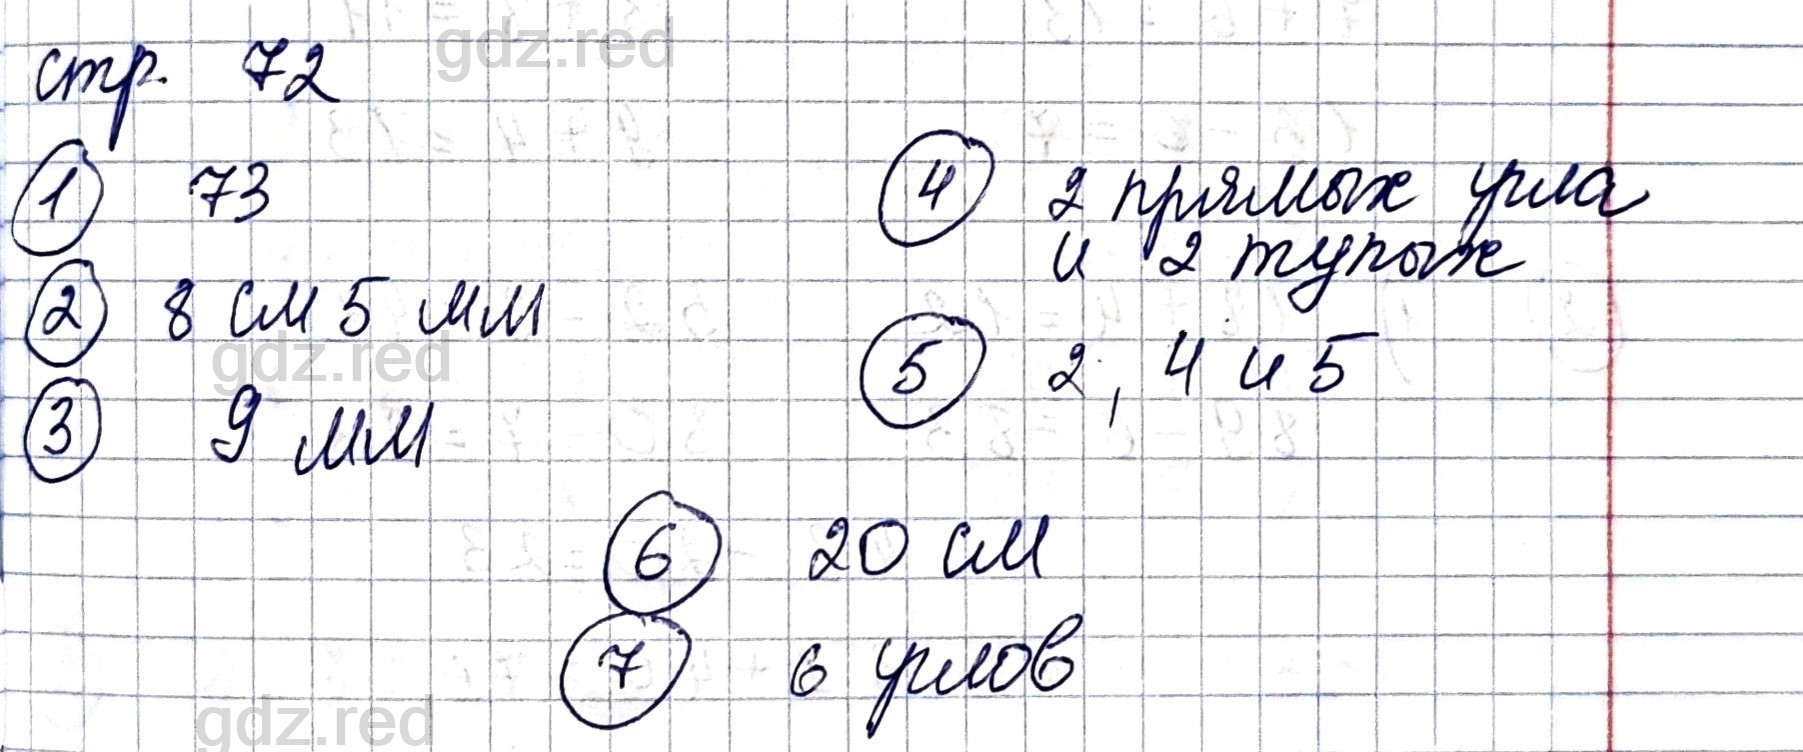 gdz.red
стр. 72
1 73
2 8 см 5 мм
gdz.red
3 9 мм
4 2 прямых угла
и 2 тупых
5 2, 4 и 5
6 20 см
7 6 углов
gdz.red